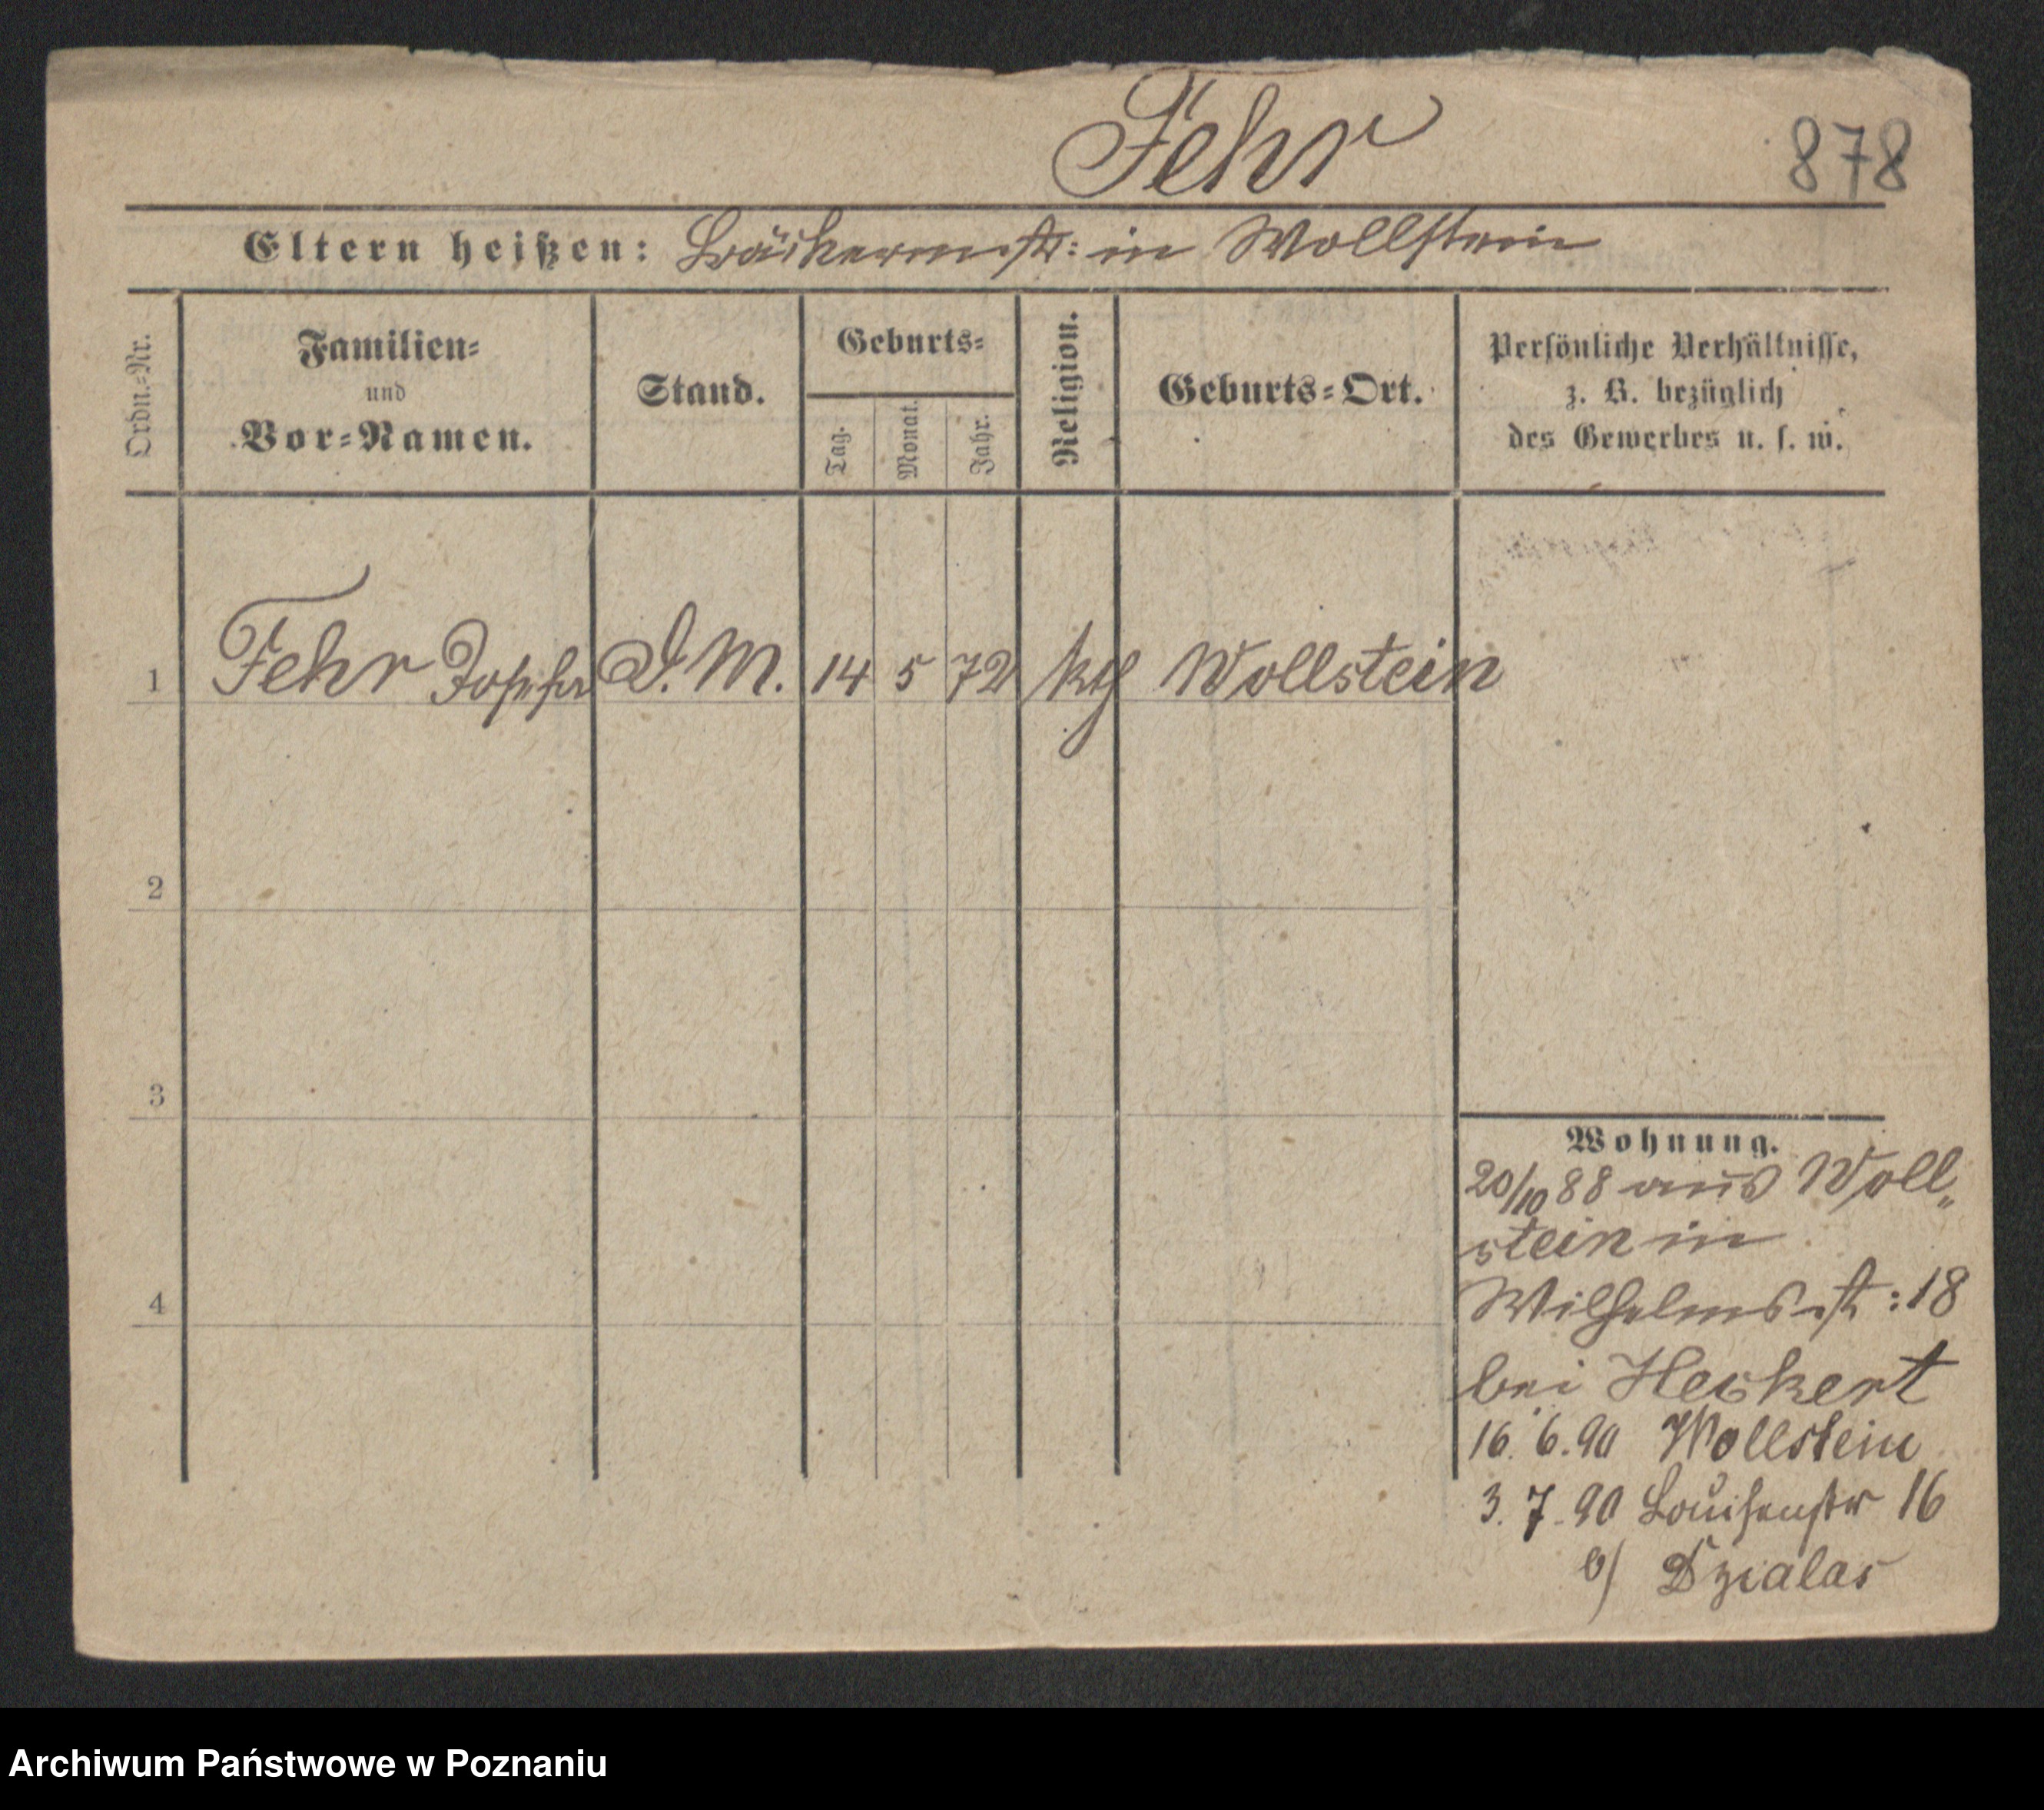 Fehr
878
Eltern heißen: Bäckermstr: in Wollstein
Ordn.-Nr.
Familien-
und
Vor-Namen.
Stand.
Geburts-
Tag.
Monat.
Jahr.
Religion.
Geburts-Ort.
Persönliche Verhältnisse,
z. B. bezüglich
des Gewerbes u. s. w.
1 Fehr D. M. 14 5 72 kth Wollstein
2
3
4
Wohnung.
20/10 88 aus Woll„
stein in
Wilhelmsst: 18
bei Heckert
16. 6. 90 Wollstein
3. 7. 90 Louisenstr 16
b/ Dzialas
Archiwum Państwowe w Poznaniu